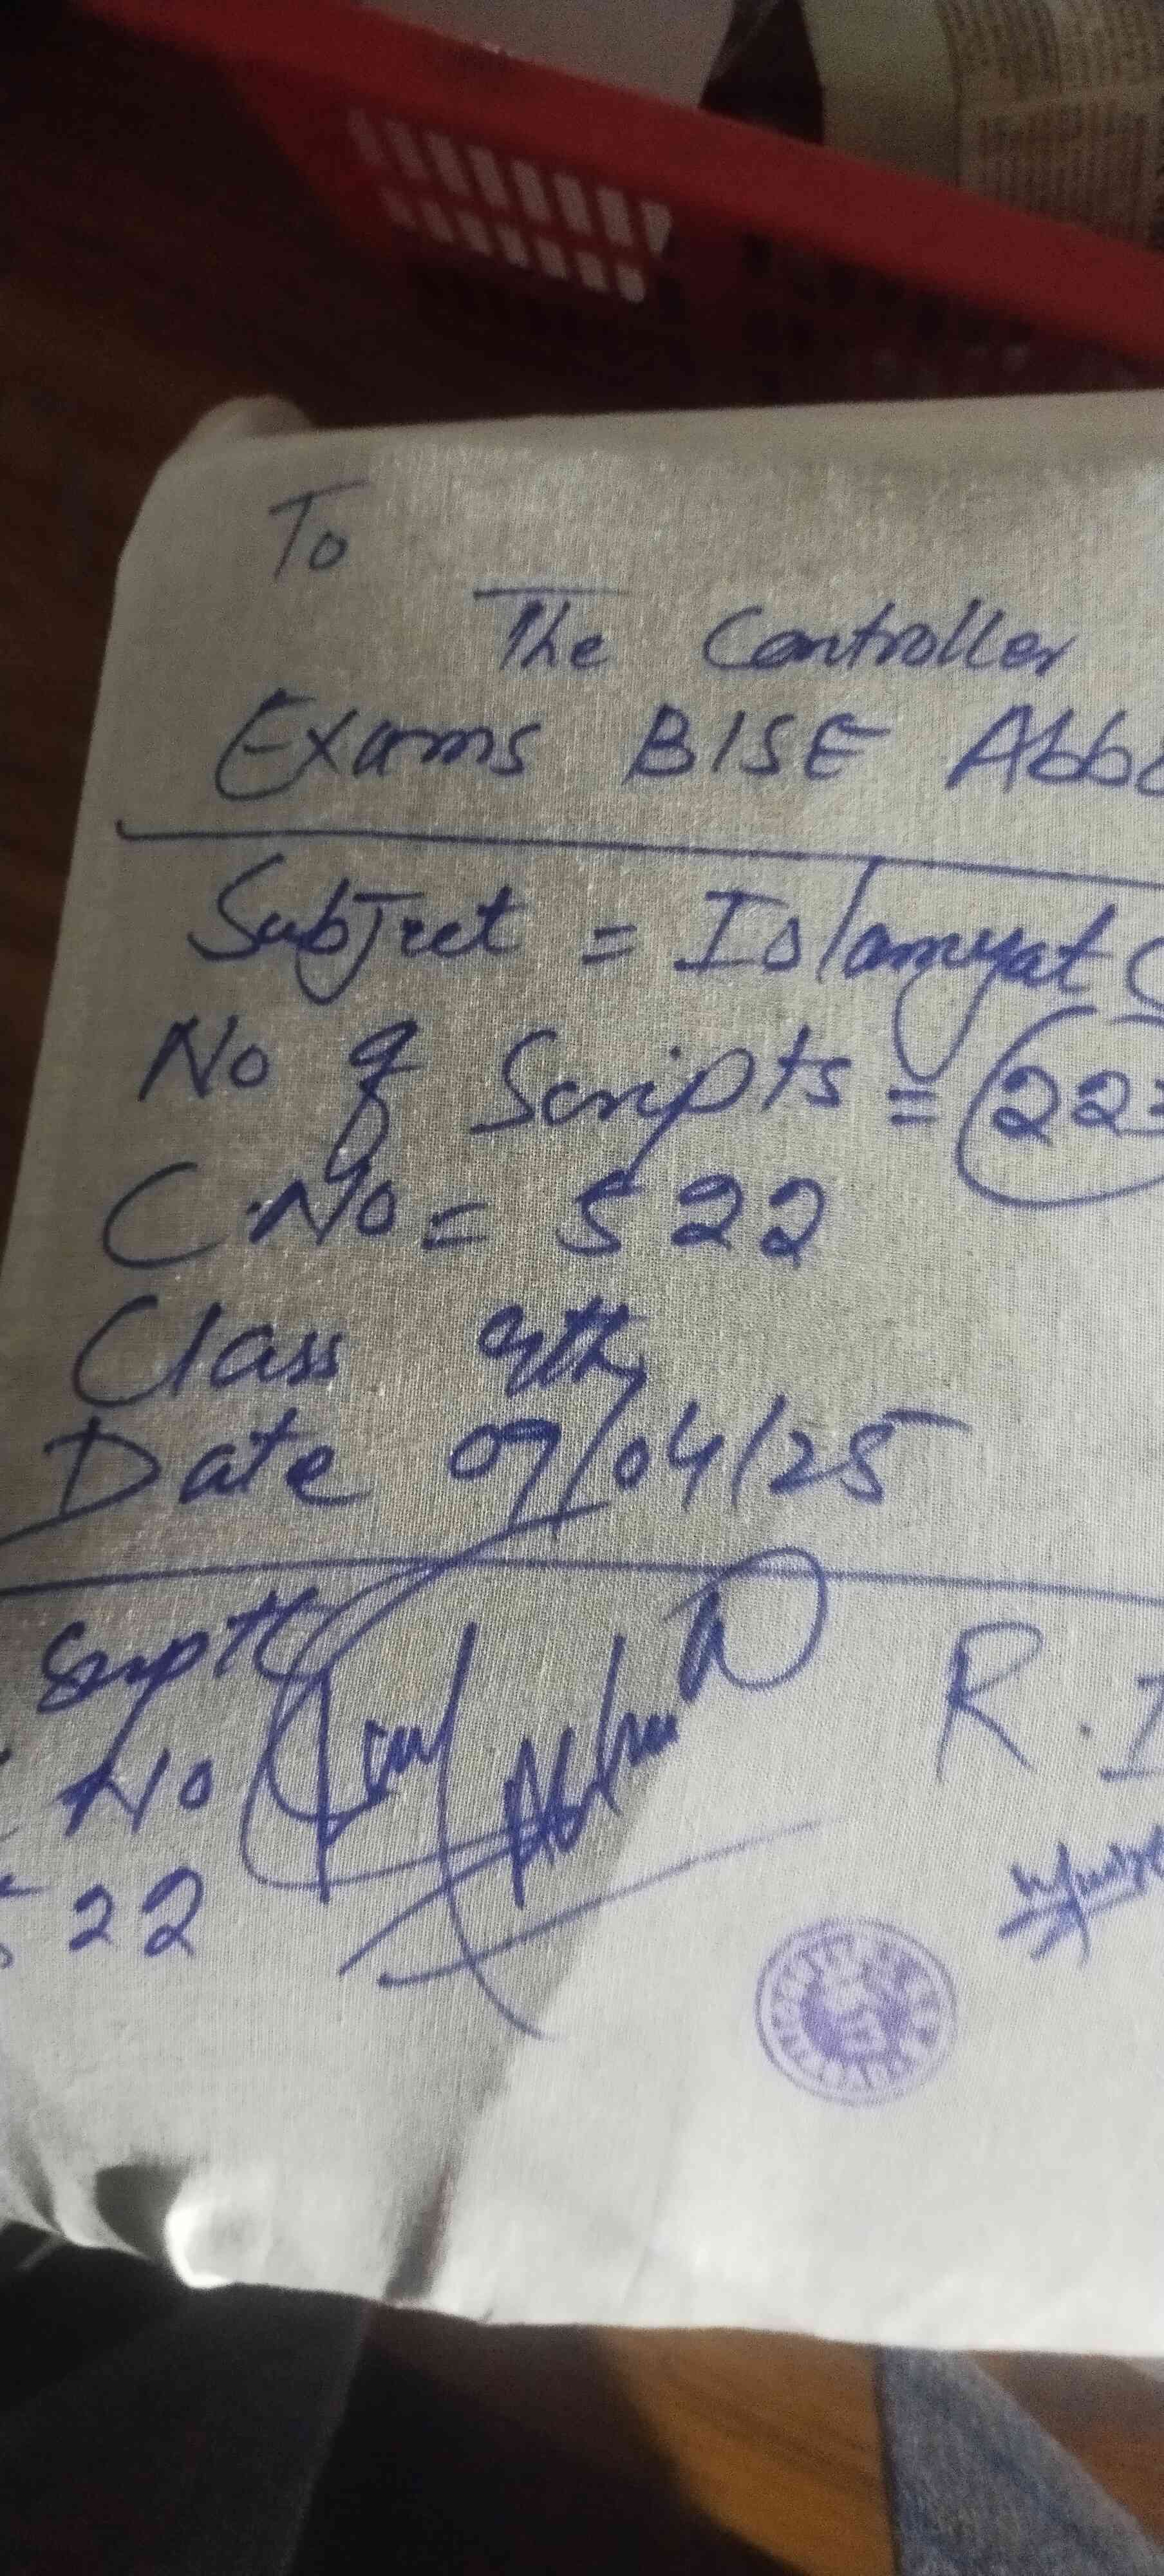 To
The Controller
Exams BISE Abbo
Subject = Islamyat
No of Scripts = 223
C.No = 522
Class 9th
Date 09/04/25
Suptt
R.I
C No
522